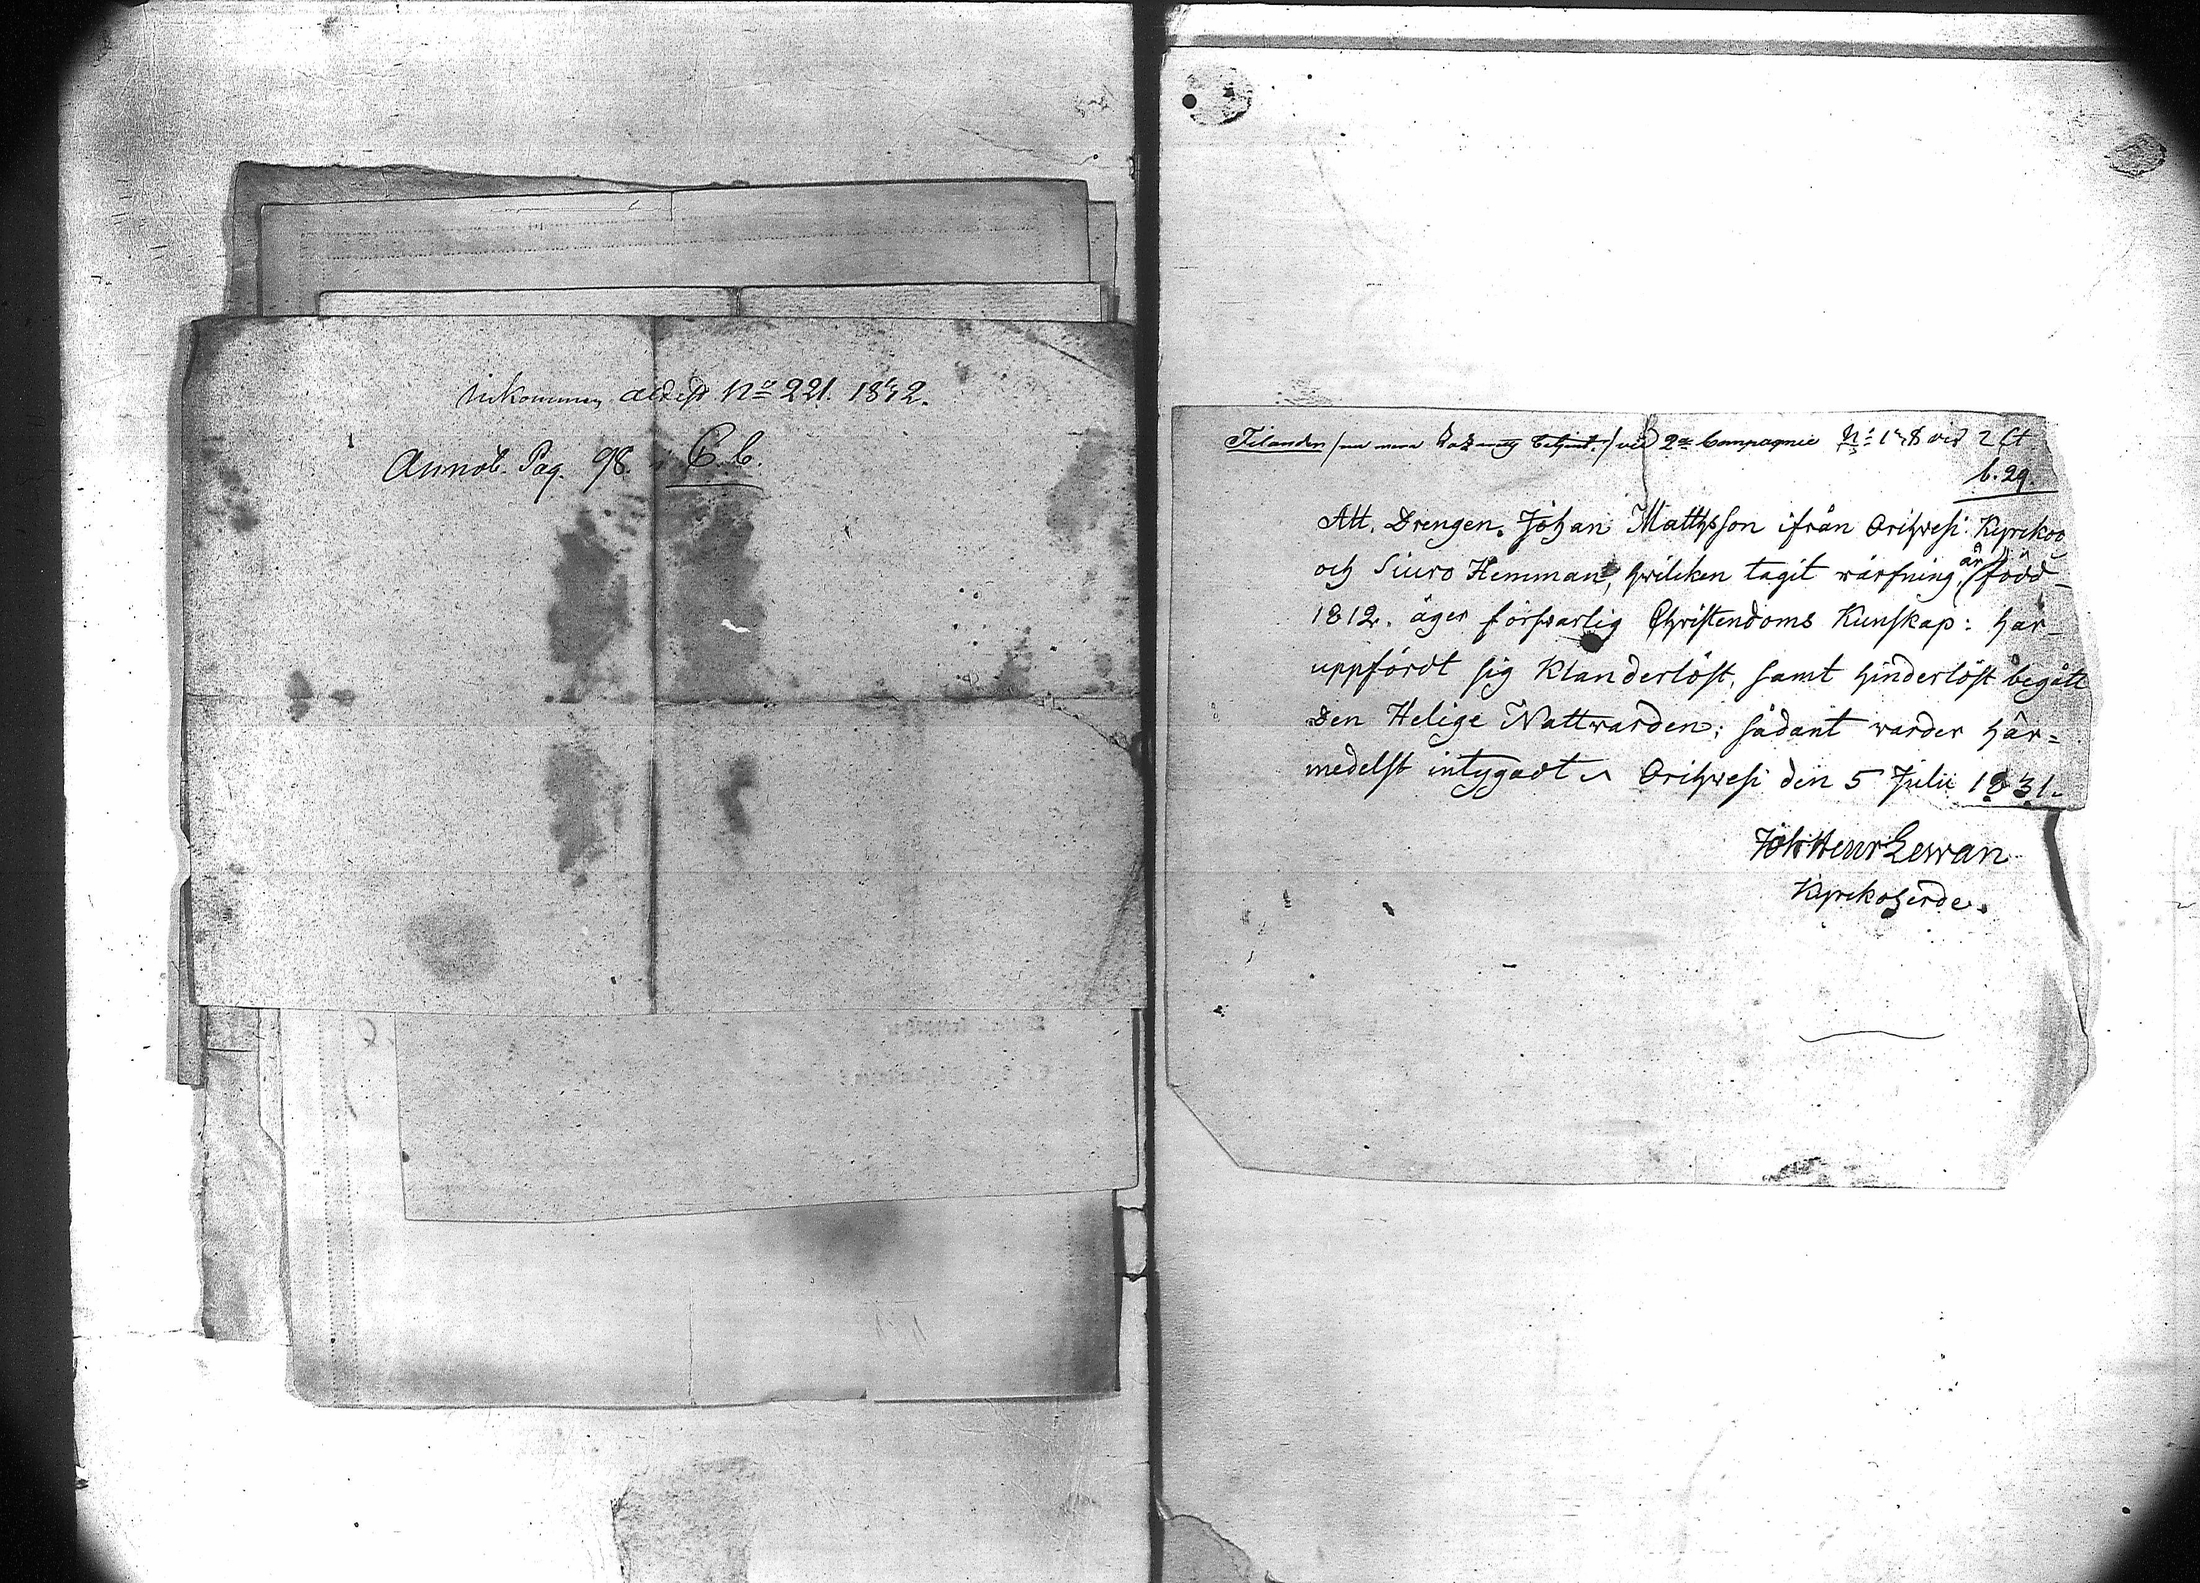 inkommen attest No 221. 1842.
Annot. Pag. 98. i C. b.
Tilandin / vid 2a Compagnie No 178 vid
b. 29.
Att. Drengen. Johan Mattsson ifrån Orihvesi Kyrckoo
och Siuro Hemman, hvilcken tagit värfning, är född
1812. äger försvarlig Christendoms Kunskap: har
uppfördt sig Klanderlöst, samt hinderlöst begått
Den Helige Nattvarden; sådant varder här=
medelst intygadt Orihvesi den 5 Julii 1831.
Joh Henr Lewan
Kyrckoherde.